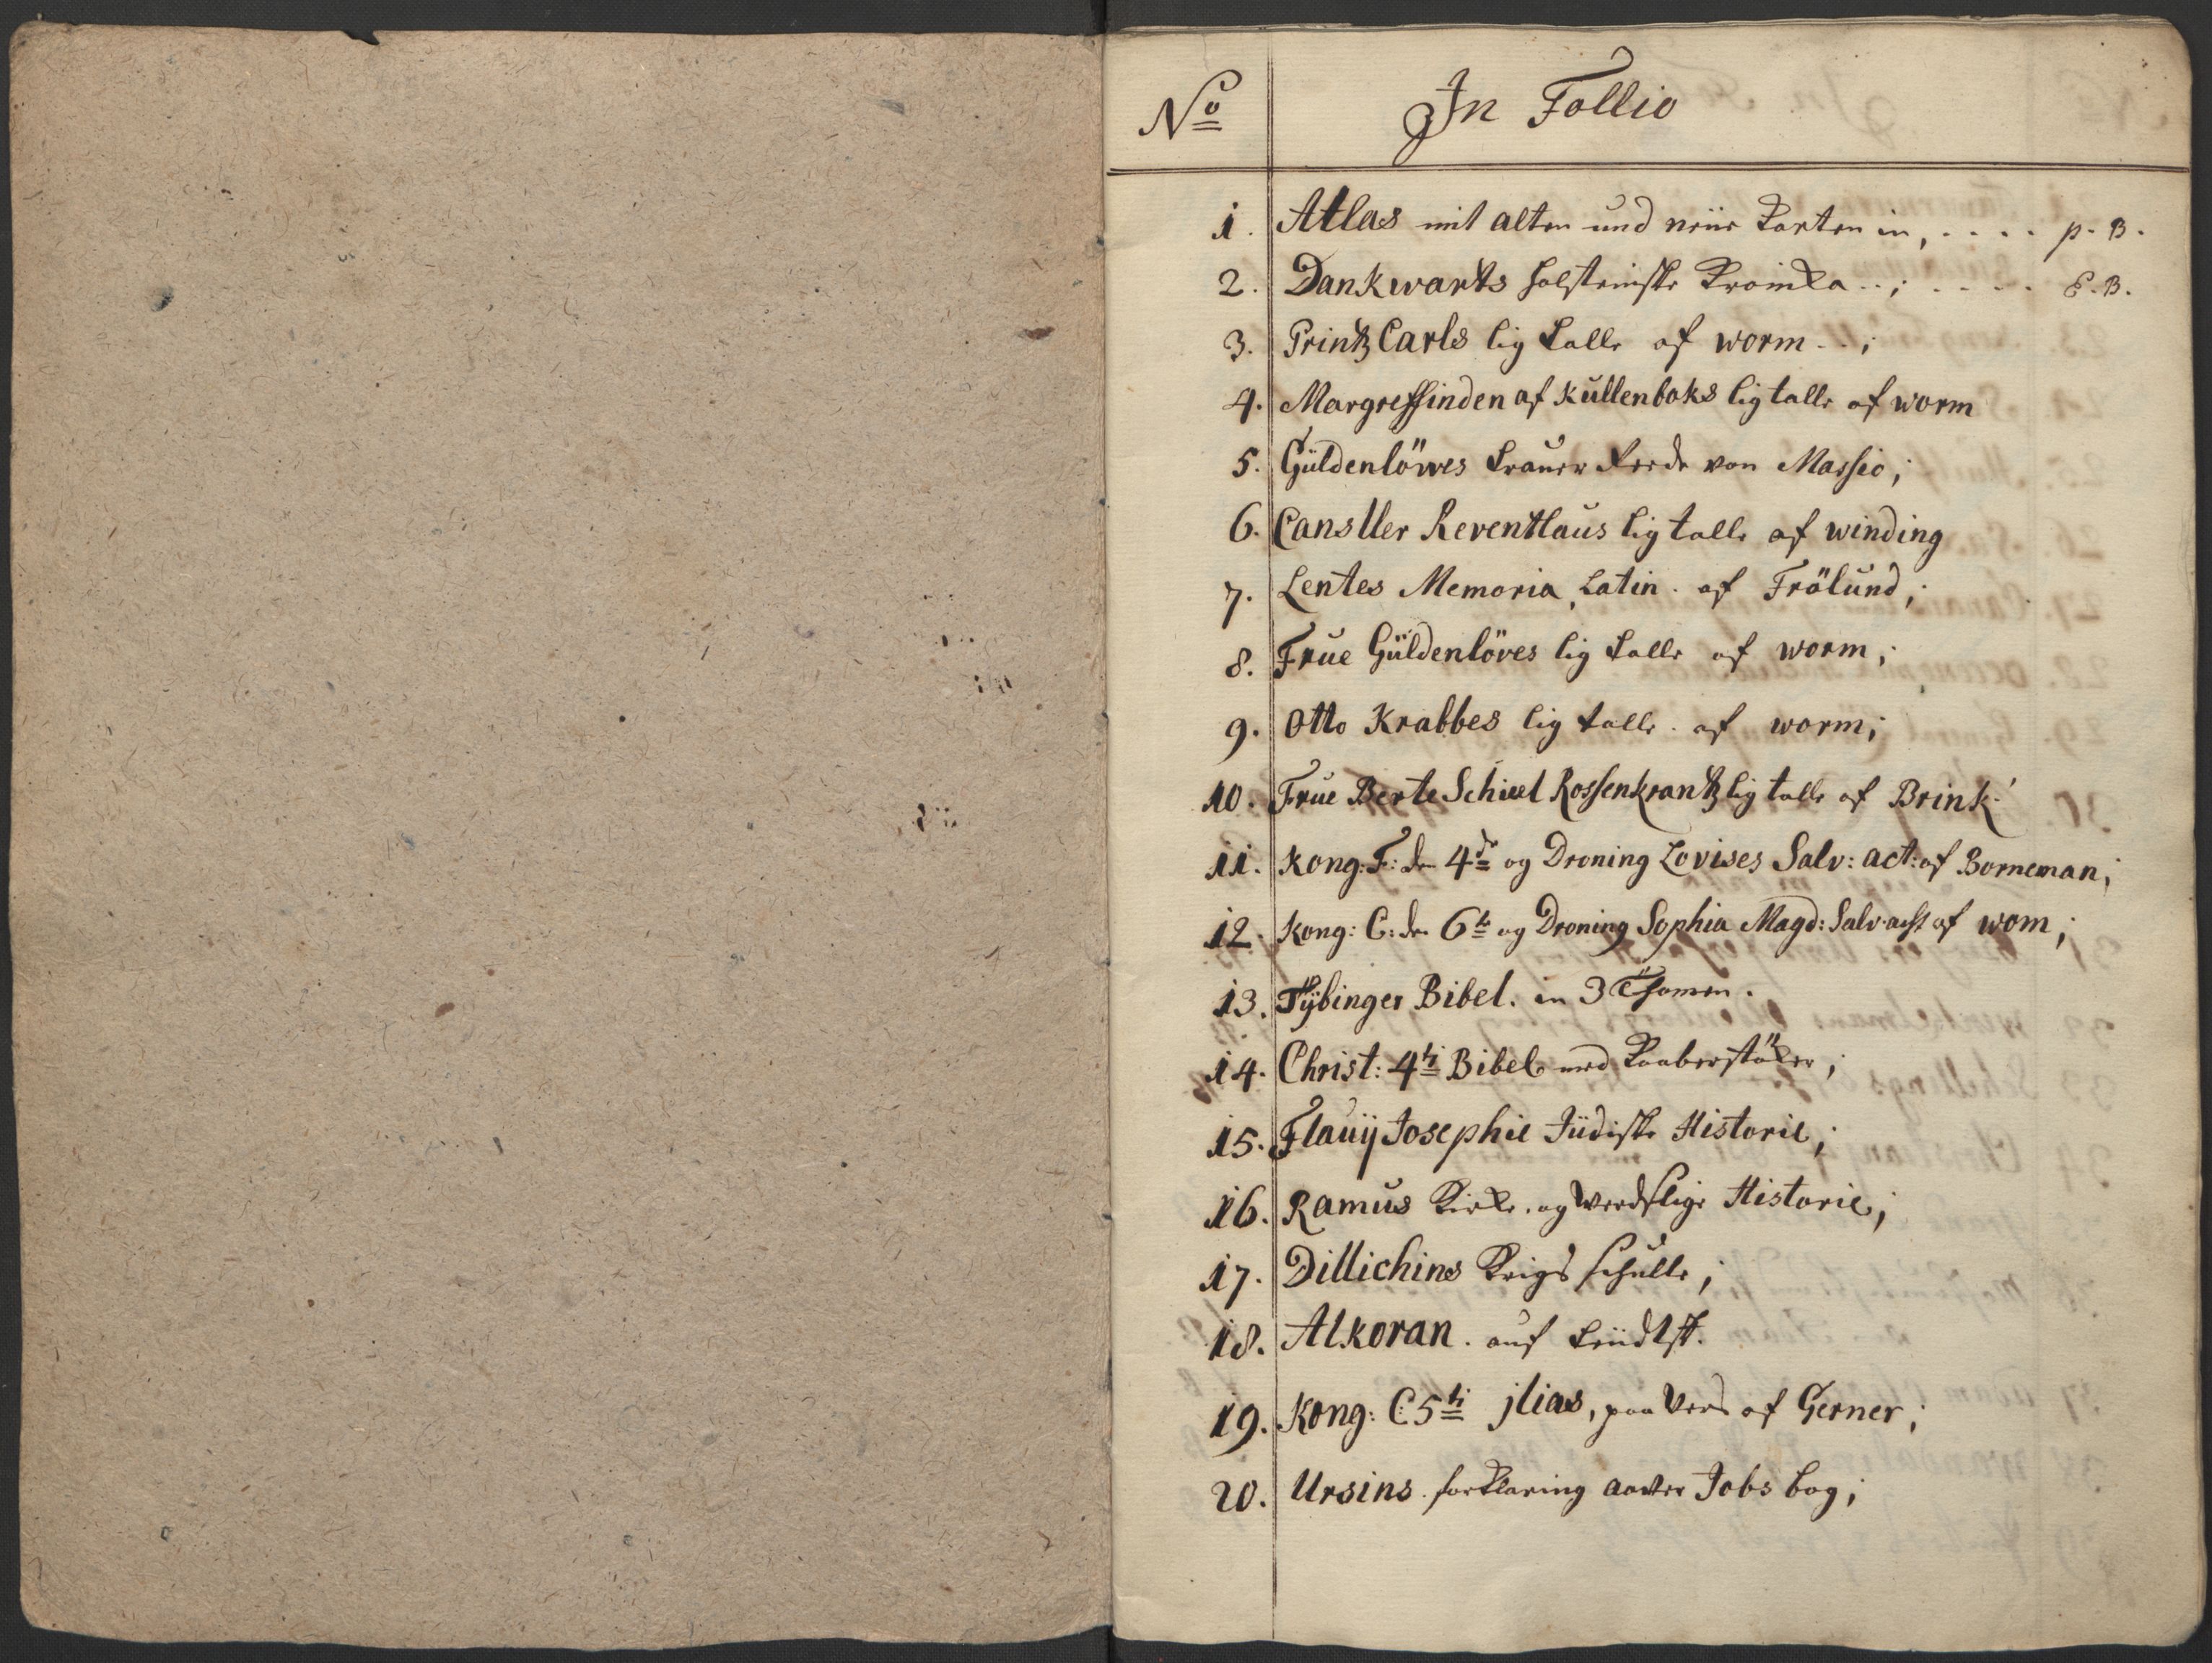 No In Follio
1. Atlas mit alten und neue Karten in, .... p. B.
2. Dankwarts Holsteinske Kroinka ..; .... E. B.
3. Printz Carls lig talle af worm ..;
4. Margreffinden af Kullenbaks lig talle af worm
5. Güldenlöwes Trauer Reede von Massio;
6. Cansller Reventlaus lig talle af winding
7. Lentes Memoria, Latin. af Frölund;
8. Frue Güldenlöves lig talle af worm;
9. Otto Krabbes lig talle. af worm;
10. Frue Berte Scheel Rossenkrantz lig talle af Brink.
11. Kong: F: den 4de og Droning Lovises Salv: act: af Borneman;
12. Kong: C: den 6te og Droning Sophia Magd: Salv. act af wom;
13. Tybinger Bibel. in 3 Thomen.
14. Christ: 4ti Bibel med Kaaberstöker;
15. Flauij Josephie Jüdiske Historie;
16. Ramus Kirke. og Werdslige Historie;
17. Dillichins Krigs schulle;
18. Alkoran. auf
19. Kong: C 5ti jlias, paa Vers af Gerner;
20. Ursins forklaring aaver Jobs bog;